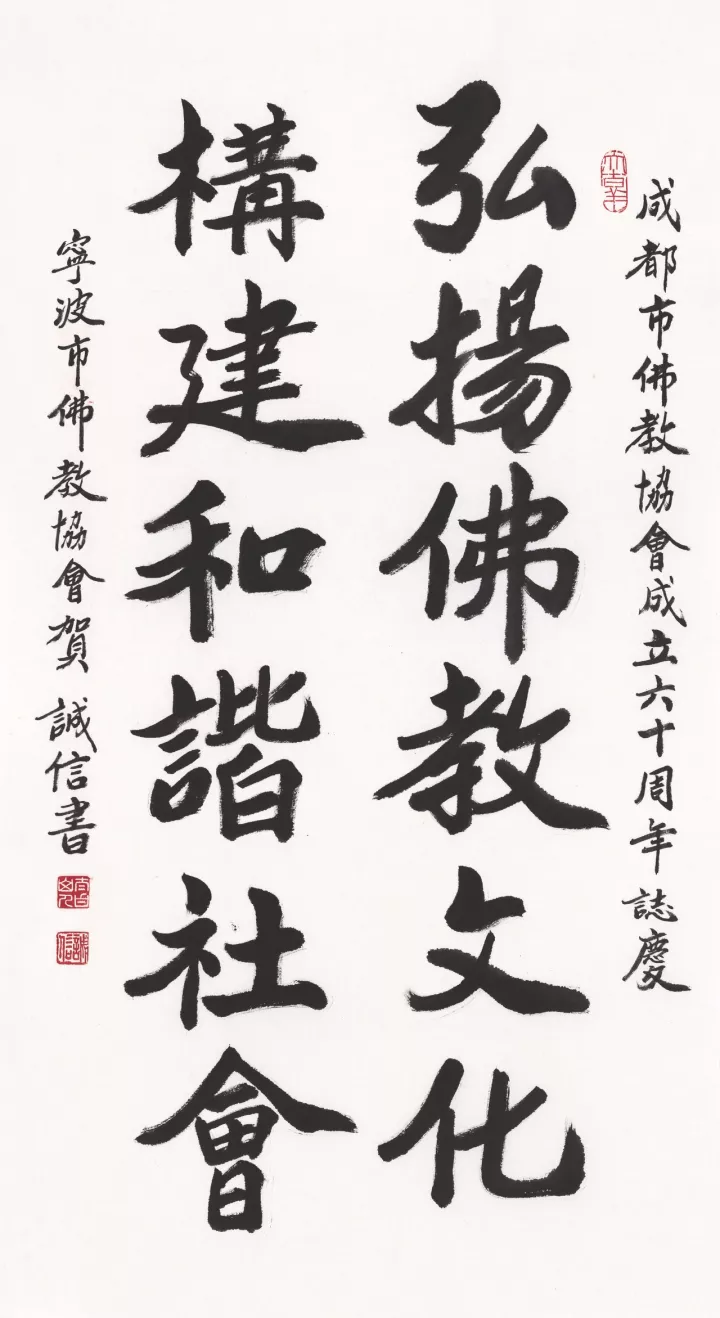 成都市佛教協會成立六十周年誌慶
弘揚佛教文化
構建和諧社會
寧波市佛教協會賀 誠信書
誠信